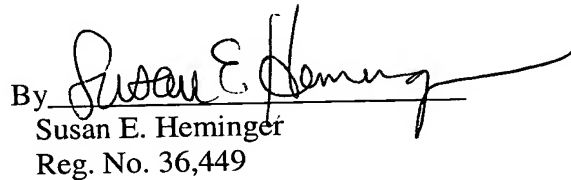 By Susan E. Heminger
Susan E. Heminger
Reg. No. 36,449